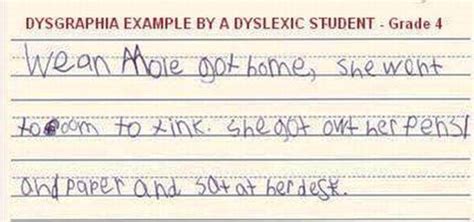 DYSGRAPHIA EXAMPLE BY A DYSLEXIC STUDENT - Grade 4
Wean Mole got home, she went
to room to xink. she got out her pens
and paper and sat at her desk.